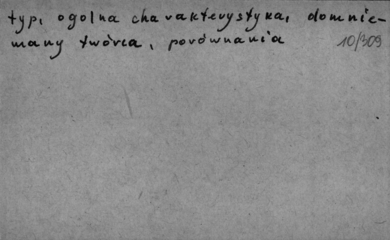 typ, ogólna charakterystyka, domnie-
many twórca, porównania
10/309